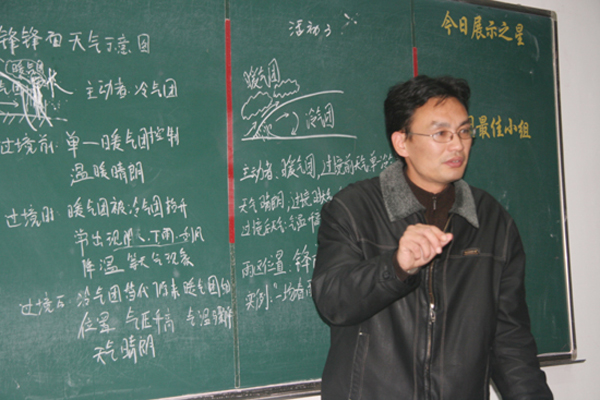 锋锋面天气示意图
暖气团
主动者:冷气团
过境前:单一暖气团控制
温暖晴朗
过境时 暖气团被冷气团抬升
常出现
降温等天气现象
过境后:冷气团替代原来暖气团的
位置 气压升高 气温骤降
天气晴朗
活动3
暖气团
冷气团
主动者:暖气团,过境前天气:单
天气晴朗,过境时
过境后天气:气温升高
雨区位置:锋
实例:"一场春雨
今日展示之星
最佳小组